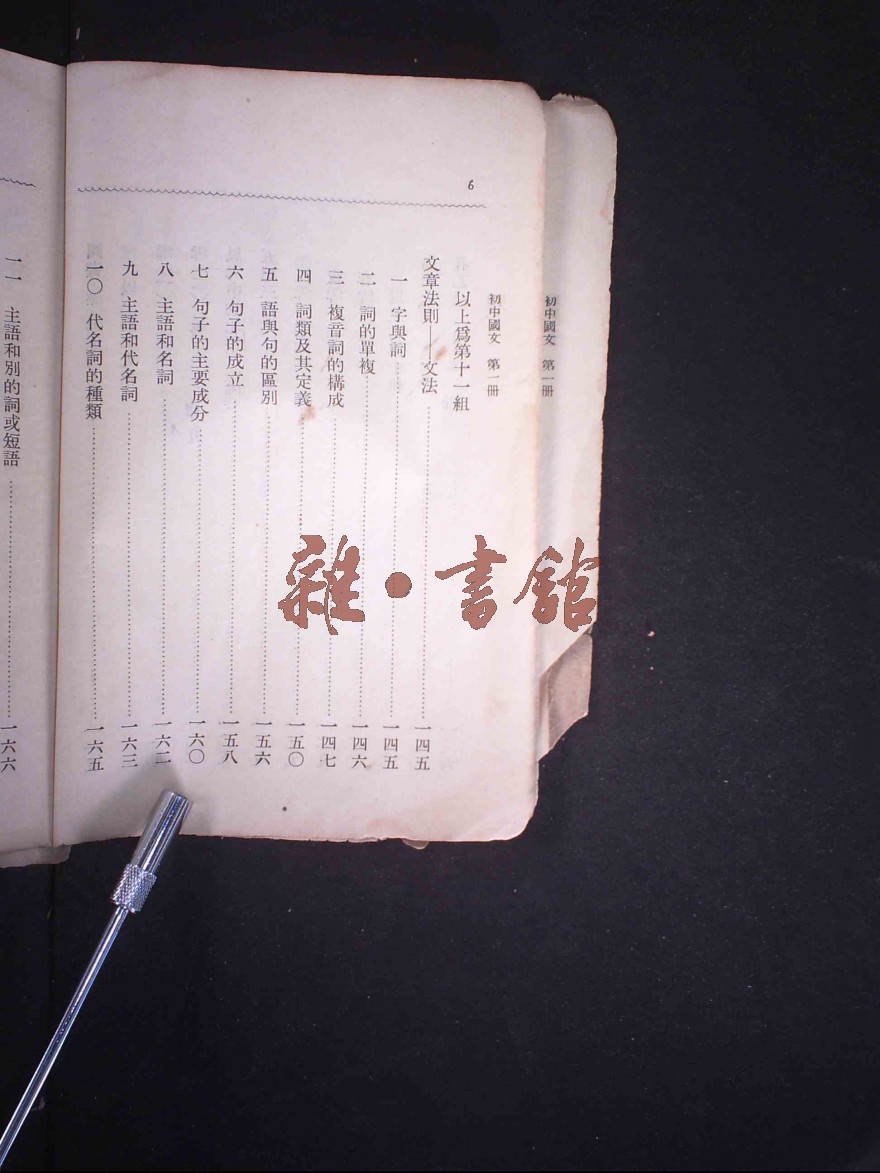 初中國文　第一册
6
初中國文　第一册
以上爲第十一組
文章法則——文法……一四五
一　字與詞……一四五
二　詞的單複……一四六
三　複音詞的構成……一四七
四　詞類及其定義……一五〇
五　語與句的區別……一五六
六　句子的成立……一五八
七　句子的主要成分……一六〇
八　主語和名詞……一六二
九　主語和代名詞……一六三
一〇　代名詞的種類……一六五
一一　主語和別的詞或短語……一六六
雜·書館